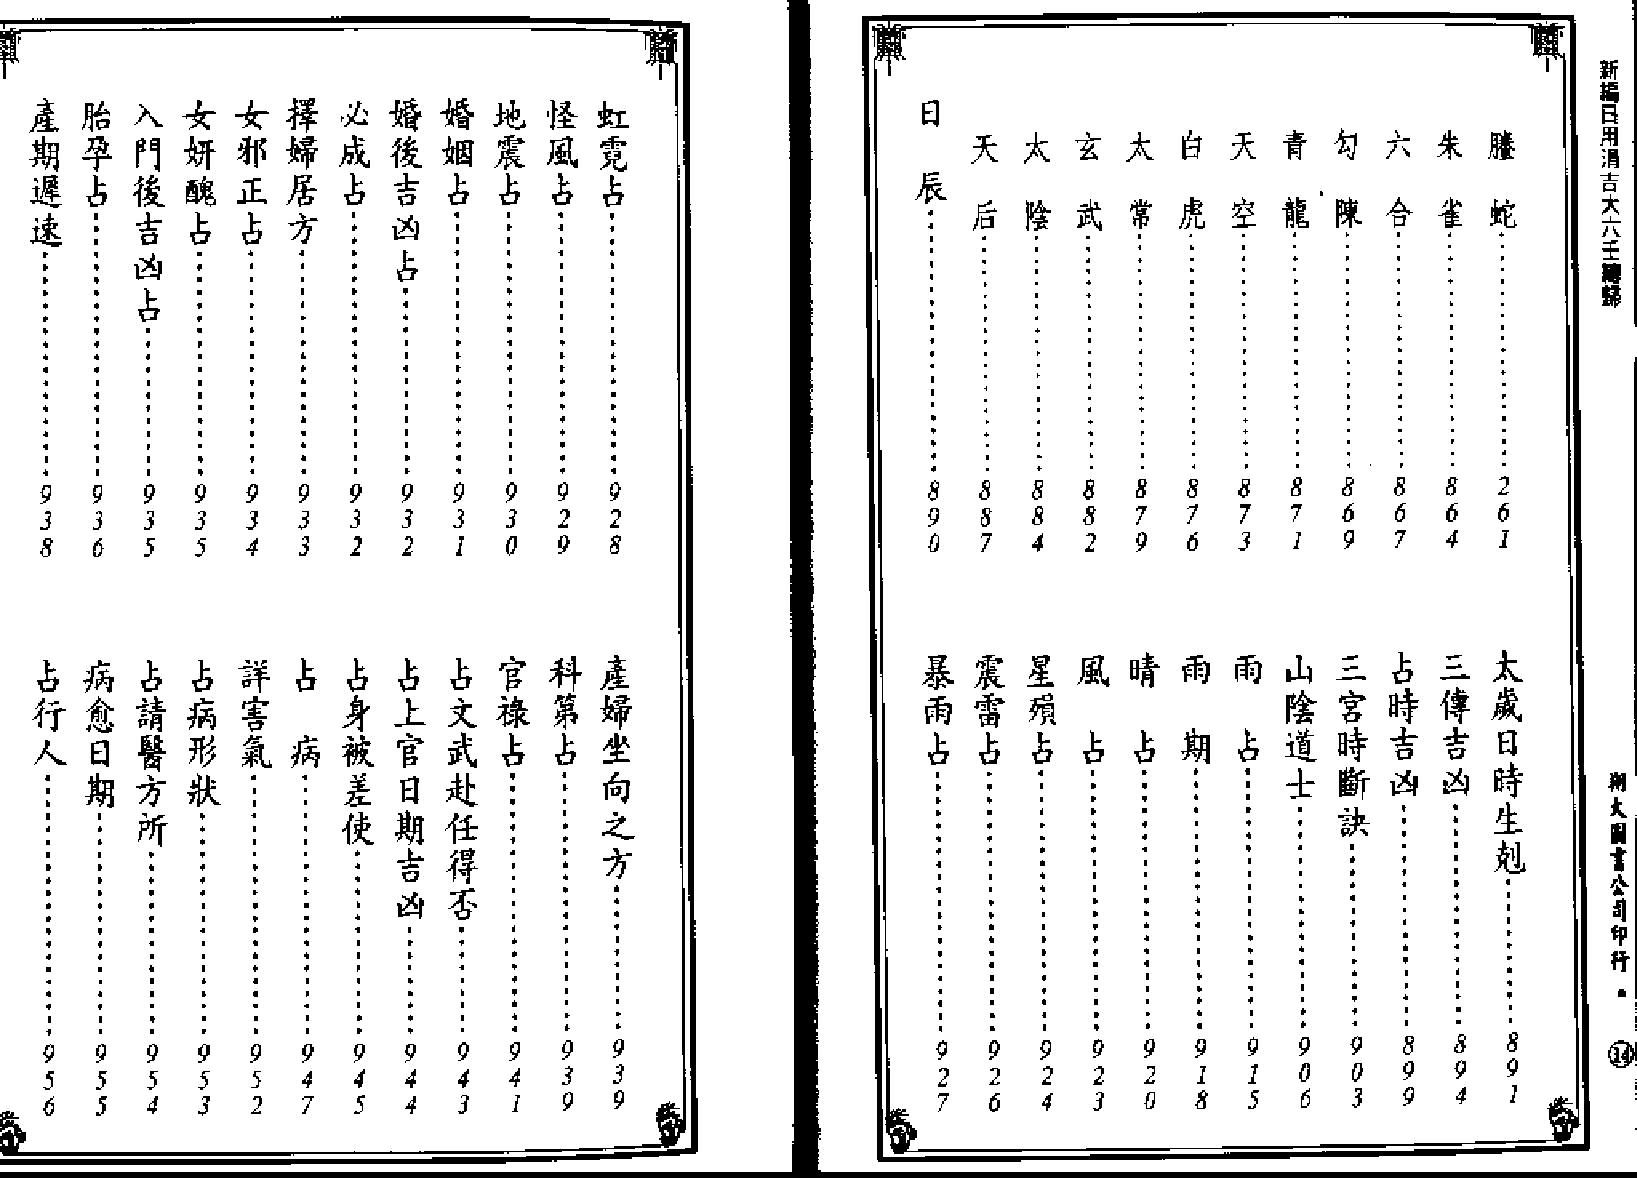 新編日用涓吉大六壬總歸
螣蛇 261
朱雀 864
六合 867
勾陳 869
青龍 871
天空 873
白虎 876
太常 879
玄武 882
太陰 884
天后 887
日辰 890
太歲日時生剋 891
三傳吉凶 894
占時吉凶 899
三宮時斷訣 903
山陰道士 906
雨占 915
雨期 918
晴占 920
風占 923
星殞占 924
震雷占 926
暴雨占 927
翔大圖書公司印行・
14
虹霓占 928
怪風占 929
地震占 930
婚姻占 931
婚後吉凶占 932
必成占 932
擇婦居方 933
女邪正占 934
女妍醜占 935
入門後吉凶占 935
胎孕占 936
產期遲速 938
產婦坐向之方 939
科第占 939
官祿占 941
占文武赴任得否 943
占上官日期吉凶 944
占身被差使 945
占病 947
詳害氣 952
占病形狀 953
占請醫方所 954
病愈日期 955
占行人 956